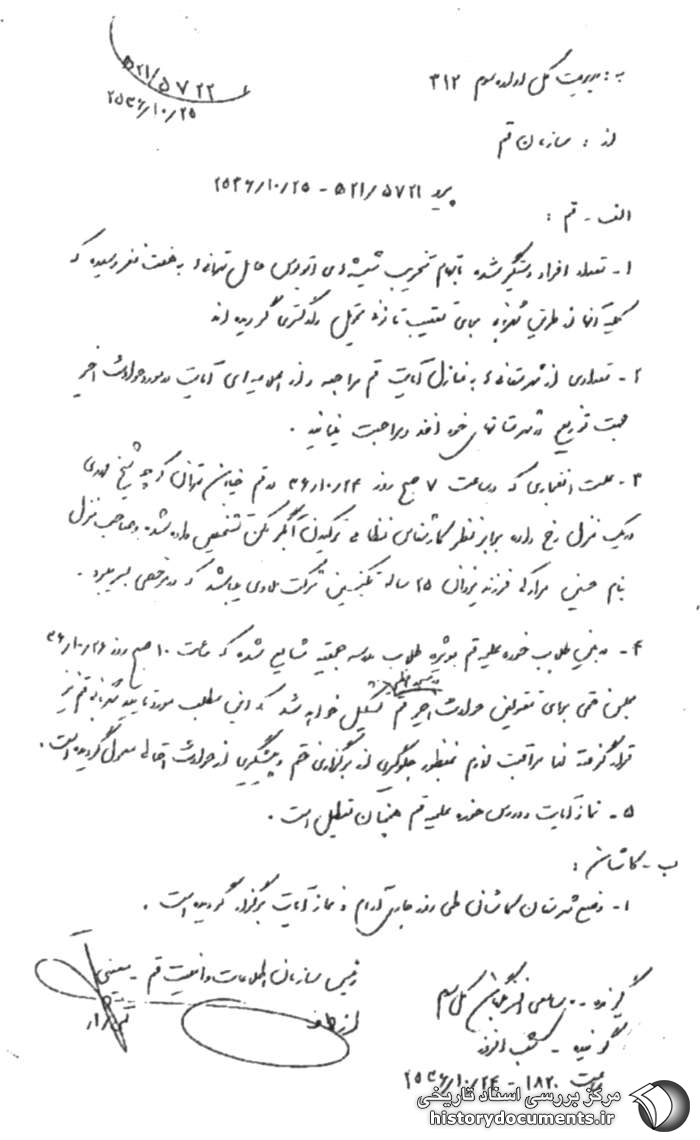 ۵۲۱/۵۷۲۲
۲۵۳۶/۱۰/۲۵
به : مدیریت کل اداره سوم ۳۱۲
از : سازمان قم
پیرو ۵۲۱/۵۷۲۱ - ۲۵۳۶/۱۰/۲۵
الف - قم :
۱- تعداد افراد دستگیر شده باتهام تخریب شیشه‌های اتوبوس حامل به هفت نفر رسیده که
کلیه آنها از طریق شهربانی برای تعقیب قانونی تحویل دادگستری گردیده اند
۲- تعدادی از به منازل آیات قم مراجعه و از اعلامیه‌های آیات در مورد حوادث اخیر
جهت توزیع در شهرستانهای خود اخذ و مراجعت مینمایند .
۳- علت انفجاری که در ساعت ۷ صبح روز ۳۶/۱۰/۲۴ در قم خیابان تهرانی کوچه شیخ مهدی
در یک منزل رخ داده برابر نظر کارشناس نظامی ترکیدن آبگرمکن تشخیص داده شده و صاحب منزل
بنام حسین فرزند یزدان ۲۵ ساله تکنیسین شرکت میباشد که در مرخصی بسر میبرد .
۴- در بین طلاب حوزه علمیه قم بویژه طلاب مدرسه حجتیه شایع شده که ساعت ۱۰ صبح روز ۳۶/۱۰/۲۶
مجلس ختمی برای مقتولین حوادث اخیر قم در مسجد اعظم تشکیل خواهد شد که این مطلب مورد تایید شهربانی قم نیز
قرار گرفته لذا مراقبت لازم بمنظور جلوگیری از برگزاری ختم و پیشگیری از حوادث احتمالی معمول گردیده است .
۵- نماز آیات و دروس حوزه علمیه قم همچنان تعطیل است .
ب - کاشان :
۱- وضع شهرستان کاشان طی روز جاری آرام و نماز آیات برگزار گردیده است .
رئیس سازمان اطلاعات و امنیت قم - معینی
از طرف
گیرنده - نگهبان کل سوم
گوینده - شب افروز
ساعت ۱۸۲۰ - ۲۵۳۶/۱۰/۲۴
مرکز بررسی اسناد تاریخی
historydocuments.ir